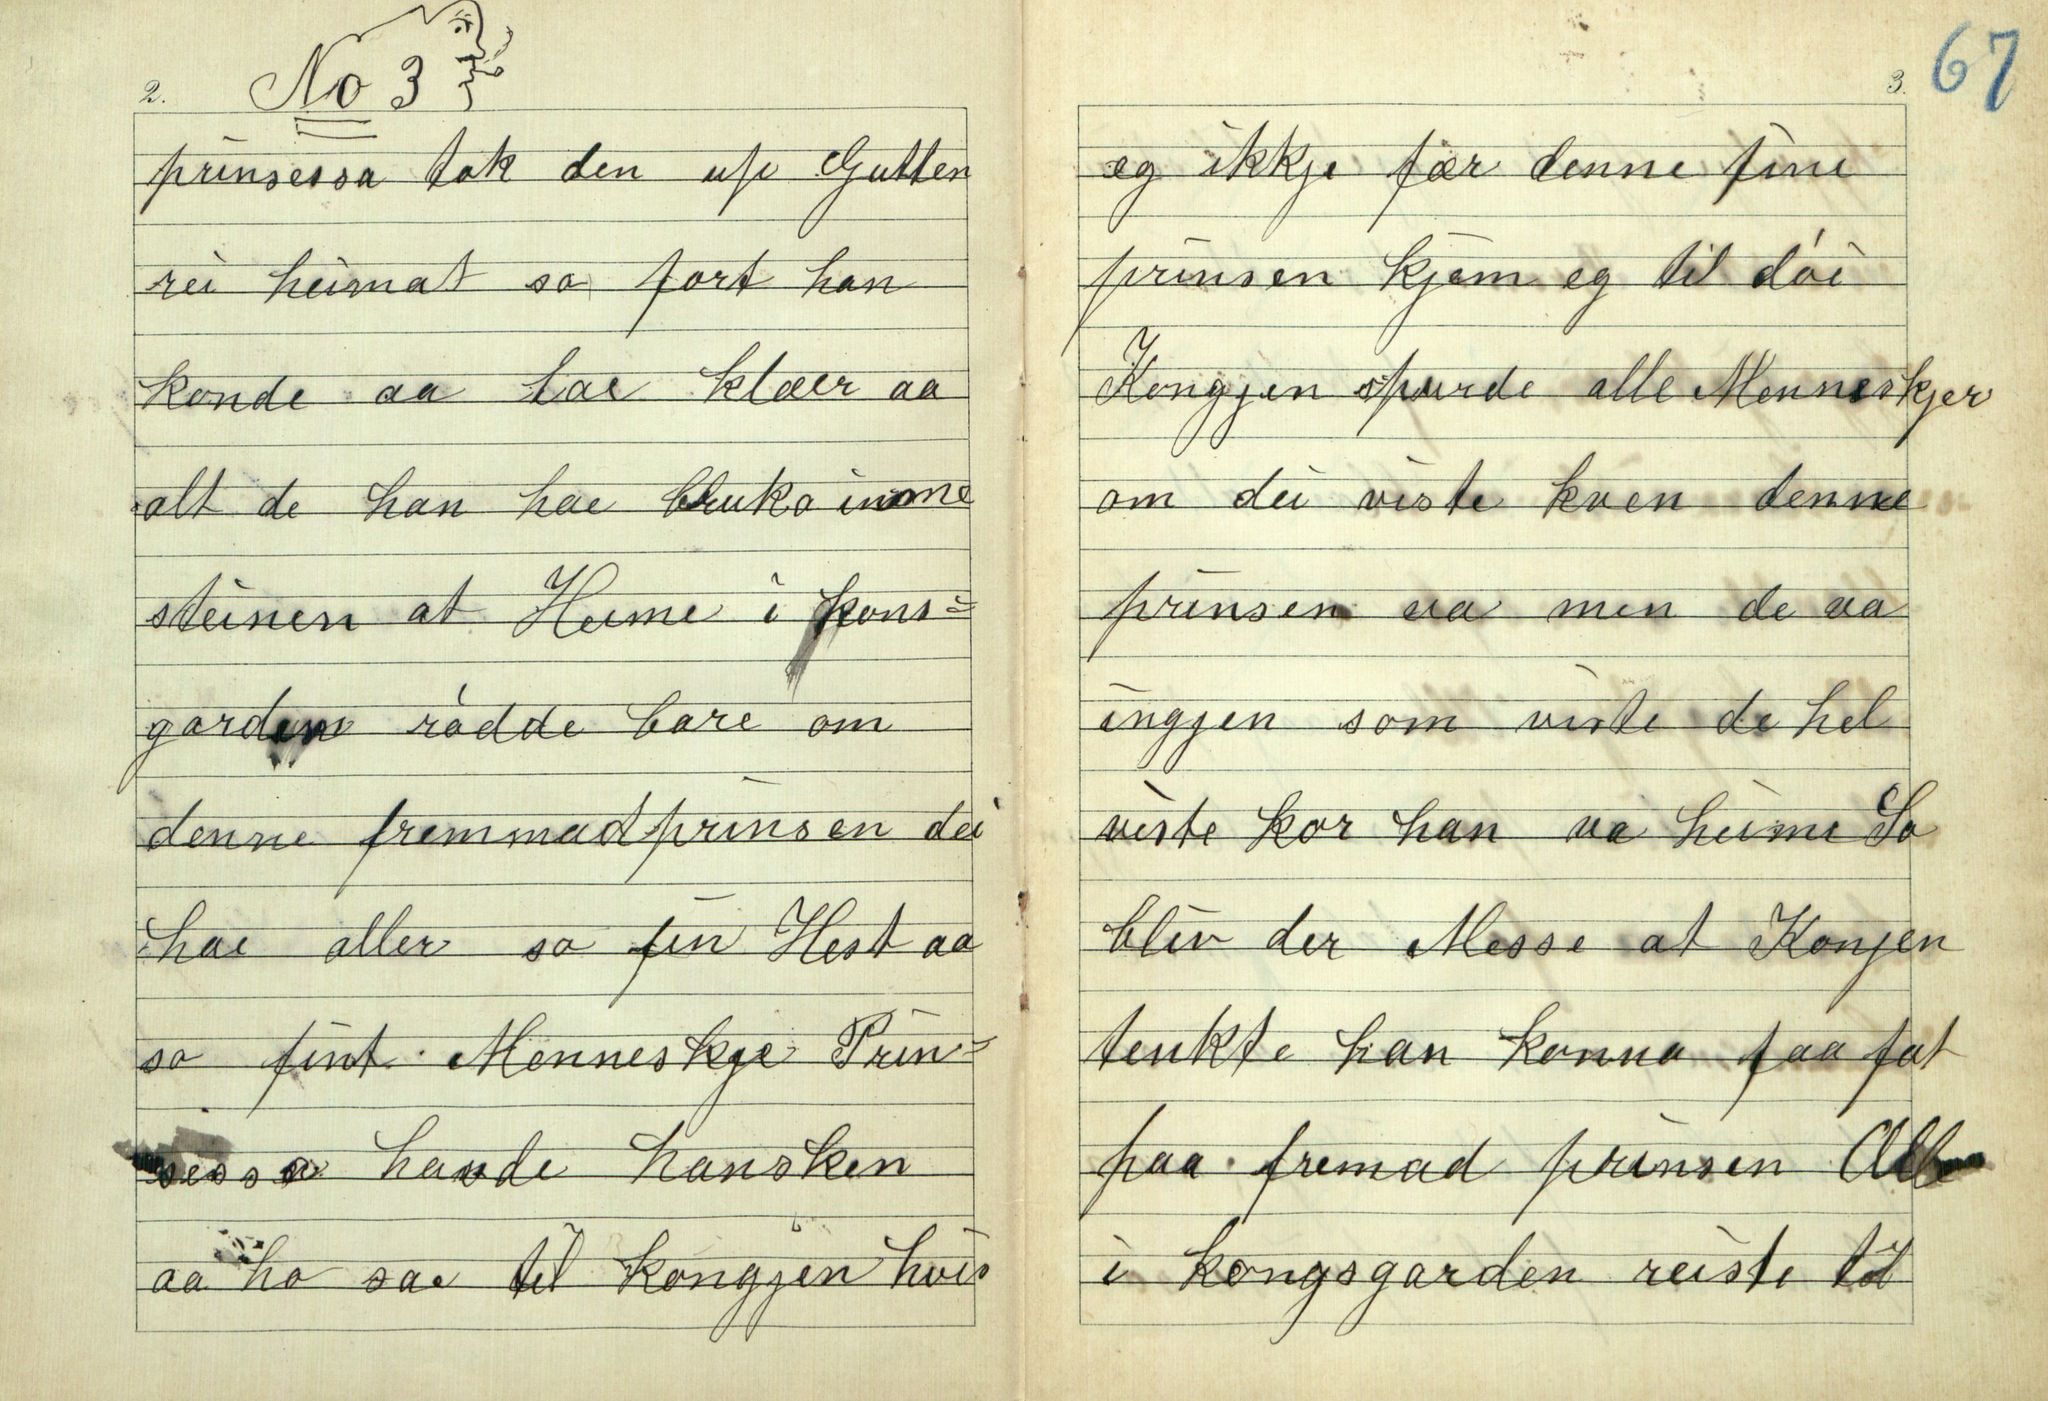 2.
No 3
prinsessa tok den up Gutten
rei heimat so fort han
konde aa lae klær aa
alt de han hae bruka inme
steinen at Heime i kons=
garden rødde bare om
denne fremmadprinsen dei
hae aller so fin Hest aa
so fint Menneskje Prin=
sessa havde hansken
aa ho sae til kongjen hvis
3.
67
eg ikkje fær denne fine
prinsen kjem eg til døi
Kongjen spurde alle Menneskjer
om dei viste kven denne
prinsen va men de va
ingjen som viste de hel
viste kor han va heime So
bliv der Messe at Konjen
tenkte han konna faa fat
paa fremad prinsen Alle
i kongsgarden reiste til